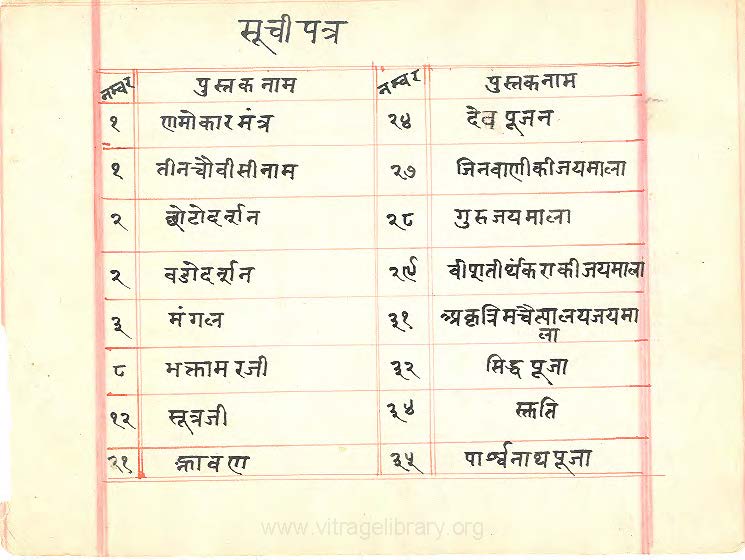 सूची पत्र
नम्बर पुस्तक नाम नम्बर पुस्तक नाम
१ णमोकार मंत्र २४ देव पूजन
१ तीन चौवीसी नाम २७ जिनवाणी की जयमाला
२ छोटो दर्शन २८ गुरु जयमाला
२ वडो दर्शन २९ वीश तीर्थंकरा की जयमाला
३ मंगल ३१ अकृत्रिम चैत्यालय जयमा
ला
८ भक्तामरजी ३२ सिद्ध पूजा
१२ सूत्रजी ३४
२१ ३५ पार्श्वनाथ पूजा
www.vitragelibrary.org